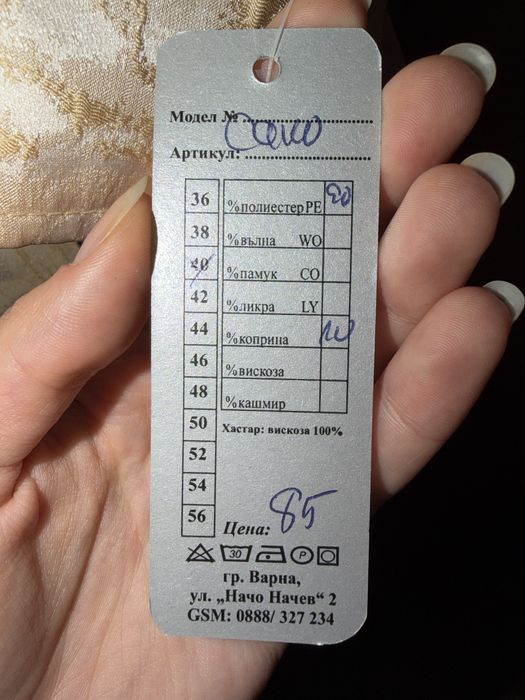 Модел № ..............................
Сако
Артикул: ..............................
36 %полиестер PE 90
38 %вълна WO
40 %памук CO
42 %ликра LY
44 %коприна 10
46 %вискоза
48 %кашмир
50 Хастар: вискоза 100%
52
54
56 Цена: 85
30 P
гр. Варна,
ул. „Начо Начев“ 2
GSM: 0888/ 327 234